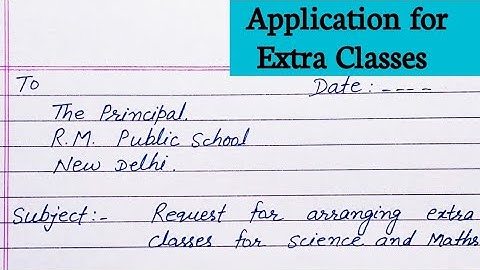 Application for
Extra Classes
To
Date : ----
The Principal.
R.M. Public School
New Delhi.
Subject :- Request for arranging extra
classes for science and Maths